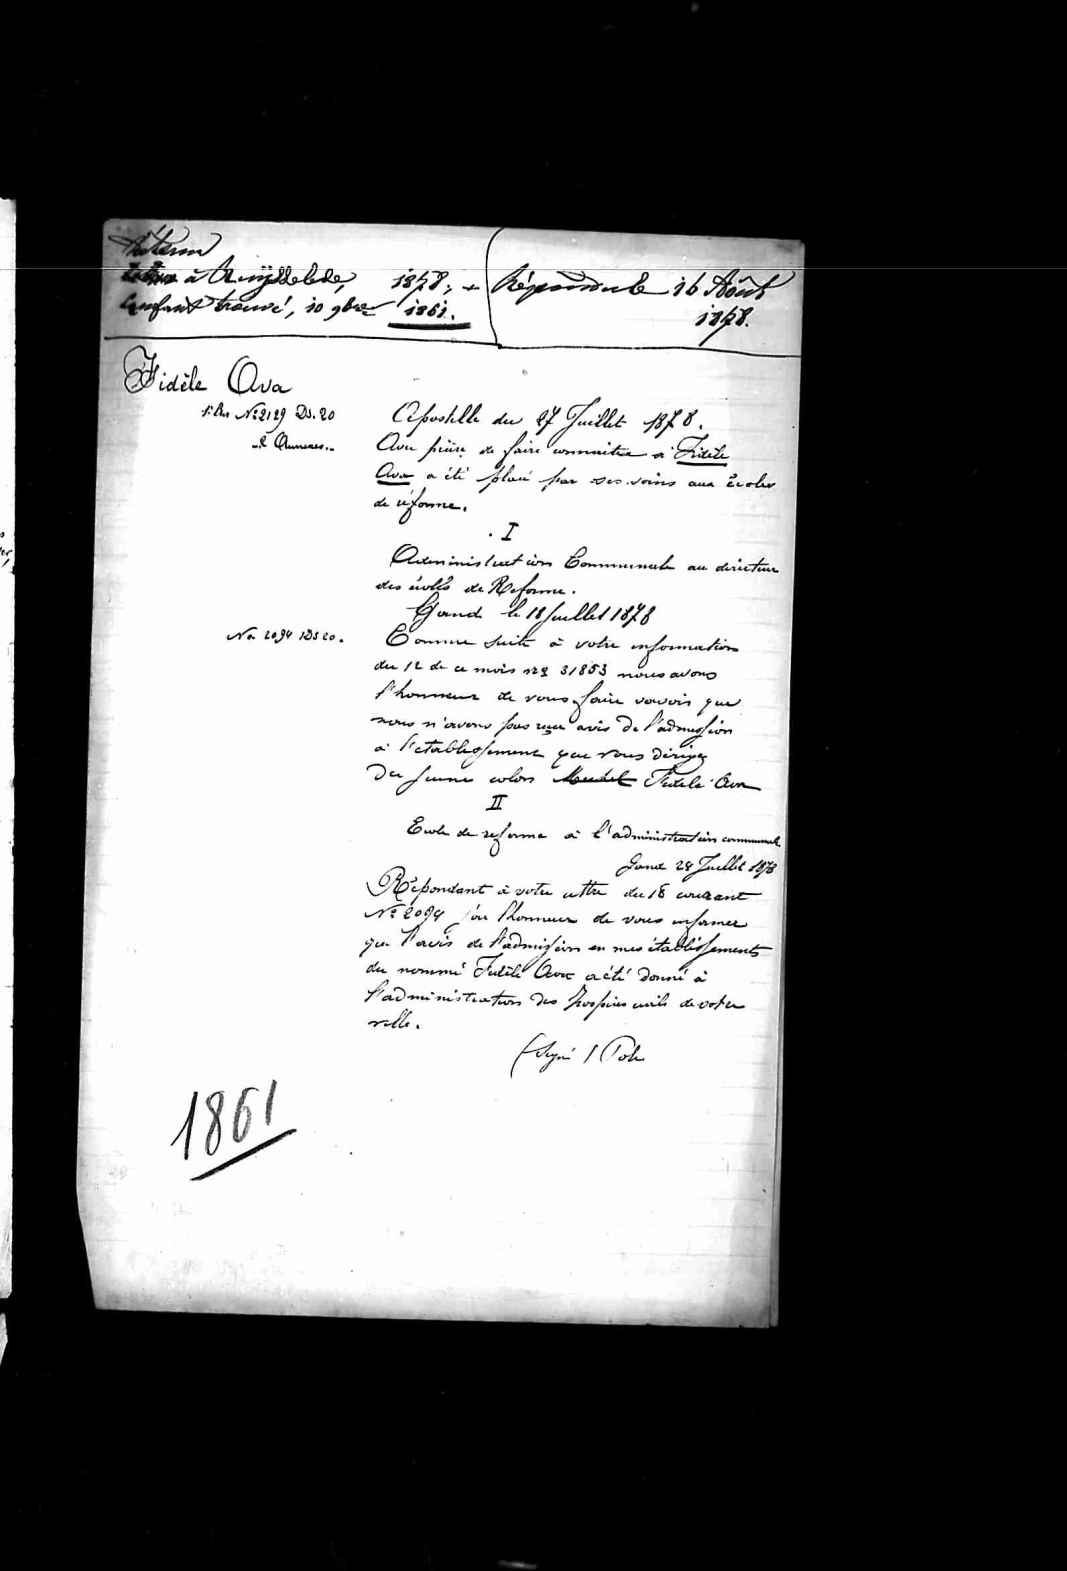 à Ruysselede, 1878; +
Enfant trouvé, 10 9bre 1861.
Répondu le 16 Août
1878.
Fidèle Ava
No 2129 Ds. 20
2 Annexes.
Apostille du 27 Juillet 1878.
Avec prière de faire connaitre si Fidèle
Ava a été placé par ses soins aux écoles
de réforme.
I
Administration Communale au directeur
des écoles de Reforme.
Gand le 18 Juillet 1878
No 2094 Ds 20.
Comme suite à votre information
du 12 de ce mois no 31853 nous avons
l'honneur de vous faire savoir que
nous n'avons pas reçu avis de l'admission
à l'etablissement que vous dirigez
du jeune colon Fidele Ava
II
Ecole de reforme à l'administration communale
Gand 28 Juillet 1878
Répondant à votre lettre du 18 courant
No 2094 j'ai l'honneur de vous informer
que l'avis de l'admission en mes établissements
du nommé Fidèle Ava a été donné à
l'administration des hospices civils de votre
ville.
(Signé)
1861